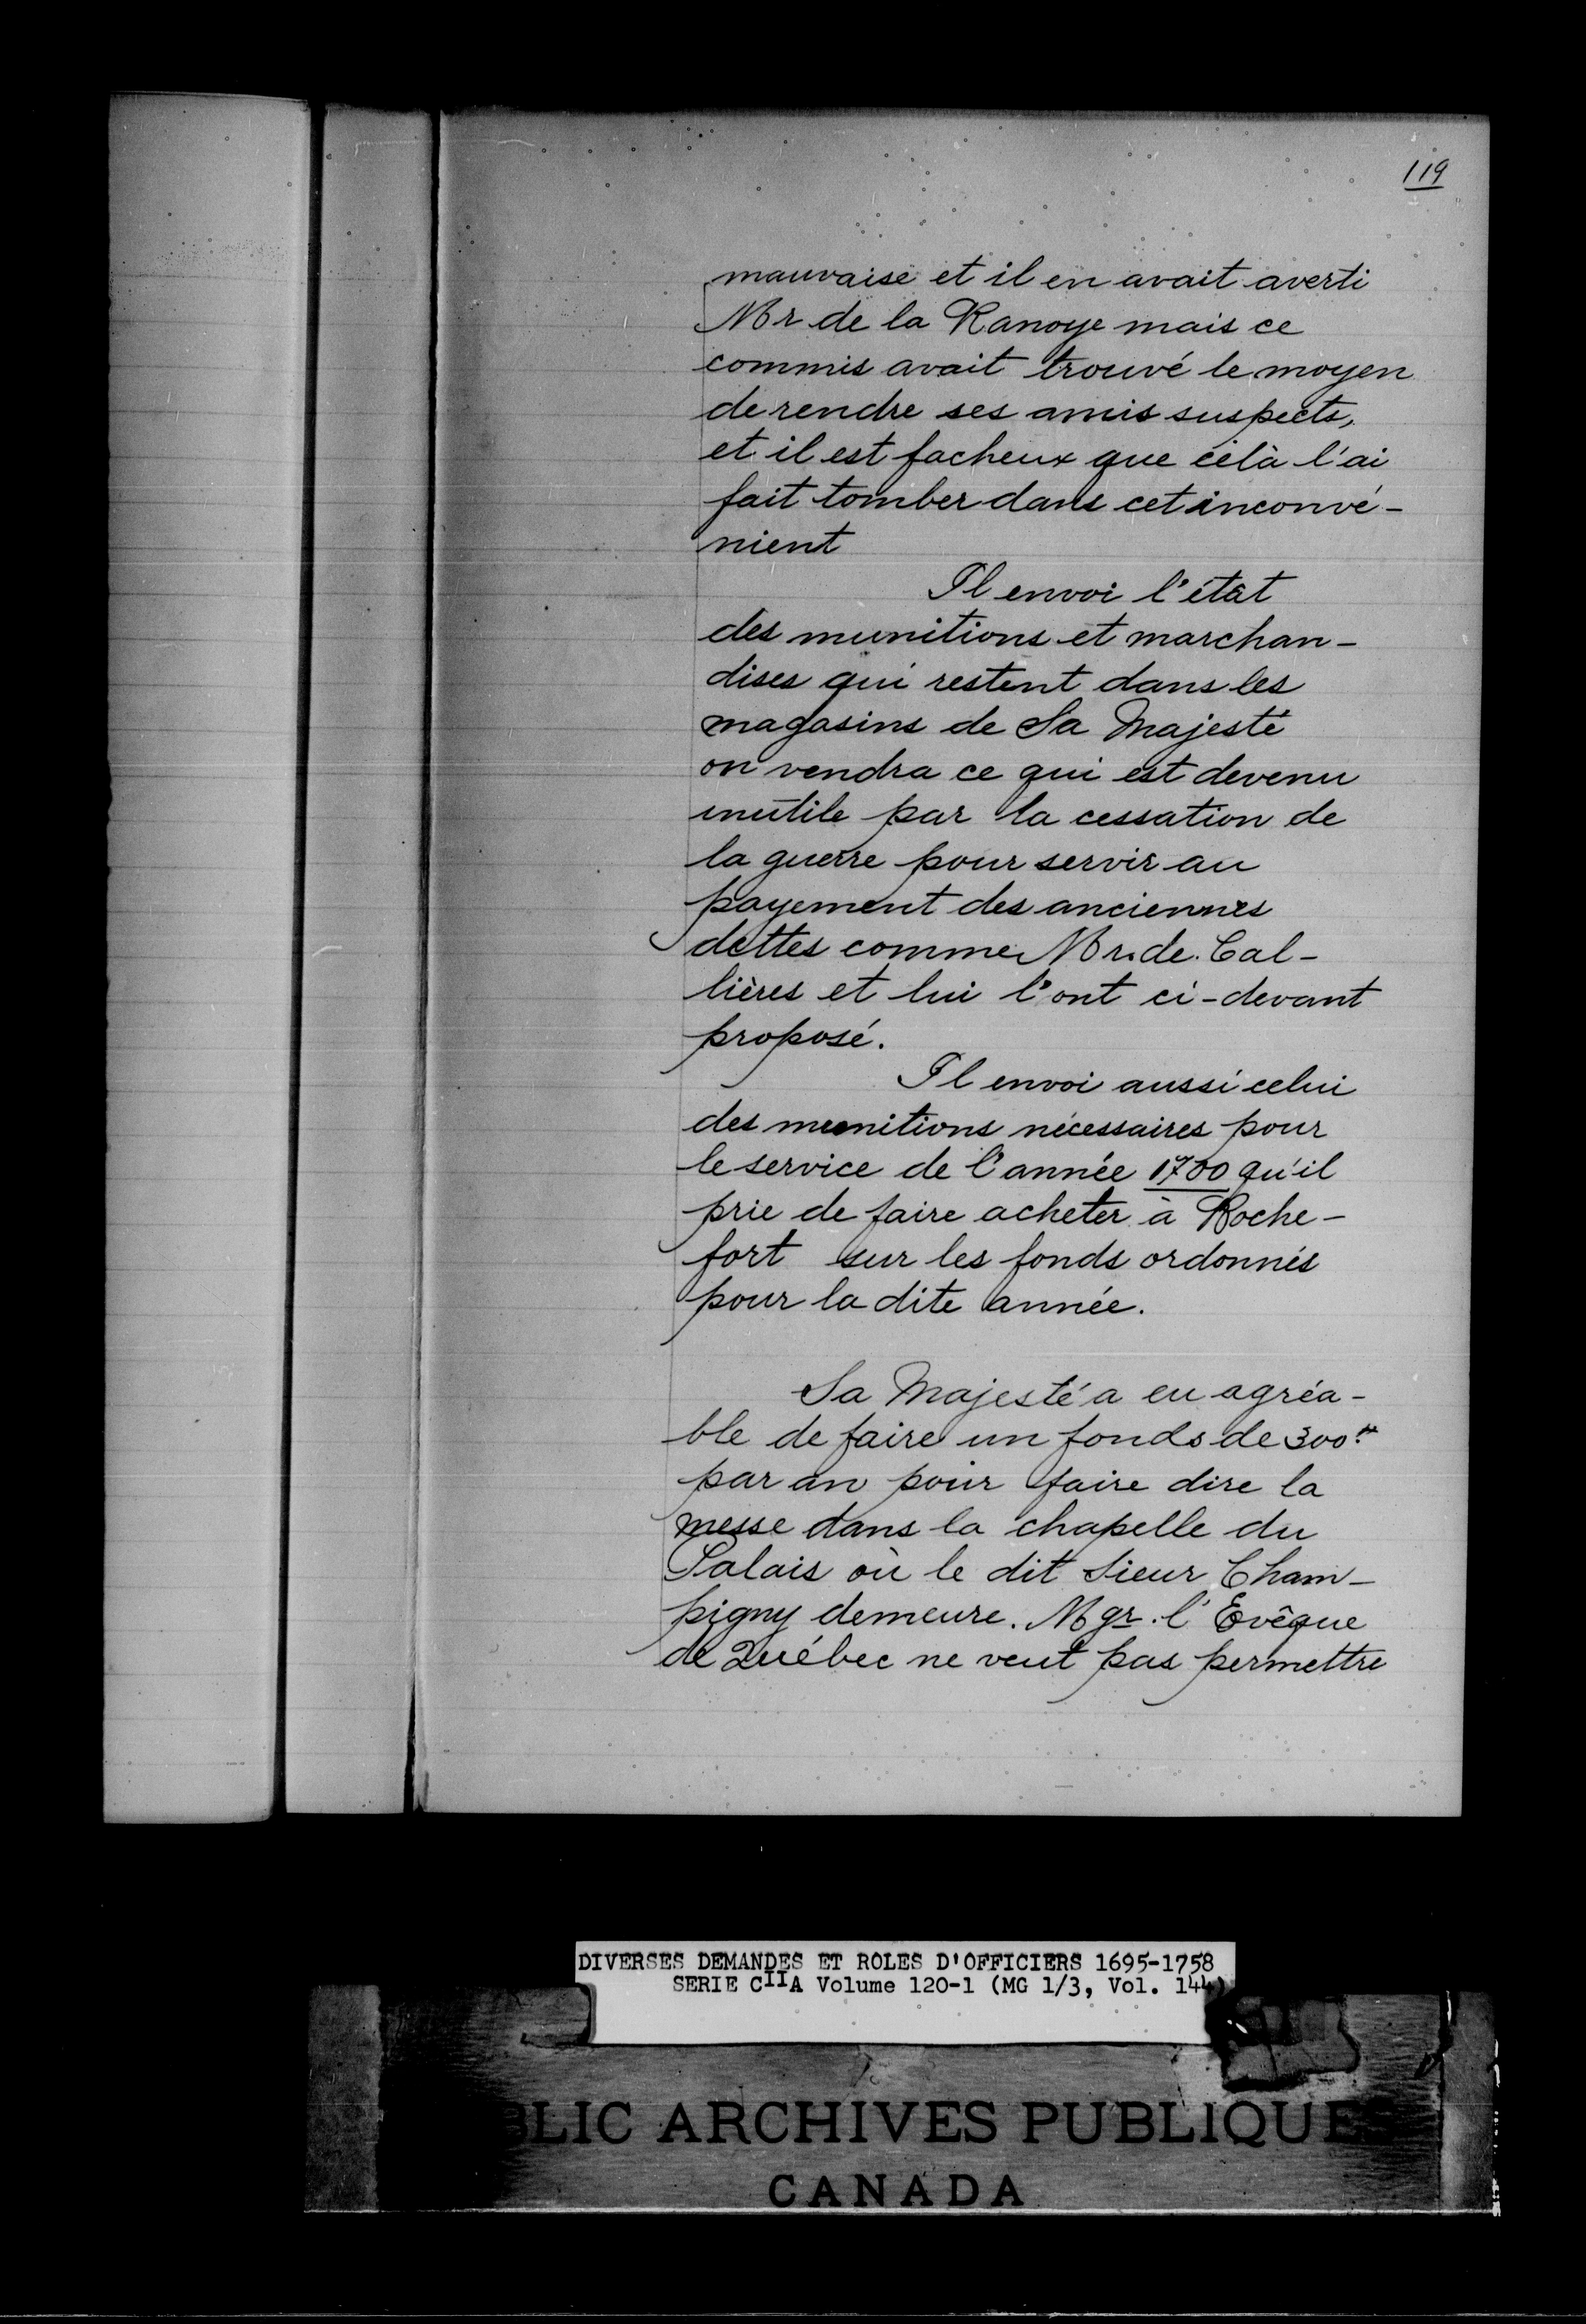 119
mauvaise et il en avait averti
Mr de la Ranoye mais ce
commis avait trouvé le moyen
de rendre ses amis suspects,
et il est facheux que celà l'ai
fait tomber dans cet inconvé-
nient
Il envoi l'état
des munitions et marchan-
dises qui restent dans les
magasins de Sa Majesté
on vendra ce qui est devenu
inutile par la cessation de
la guerre pour servir au
payement des anciennes
dettes comme Mr. de Cal-
lières et lui l'ont ci-devant
proposé.
Il envoi aussi celui
des munitions nécessaires pour
le service de l'année 1700 qu'il
prie de faire acheter à Roche-
fort sur les fonds ordonnés
pour la dite année.
Sa Majesté a eu agréa-
ble de faire un fonds de 300tt
par an pour faire dire la
messe dans la chapelle du
Palais où le dit Sieur Cham-
pigny demeure. Mgr. l'Evêque
de Québec ne veut pas permettre
DIVERSES DEMANDES ET ROLES D'OFFICIERS 1695-1758
SERIE CIIA Volume 120-1 (MG 1/3, Vol. 144)
BLIC ARCHIVES PUBLIQUE
CANADA